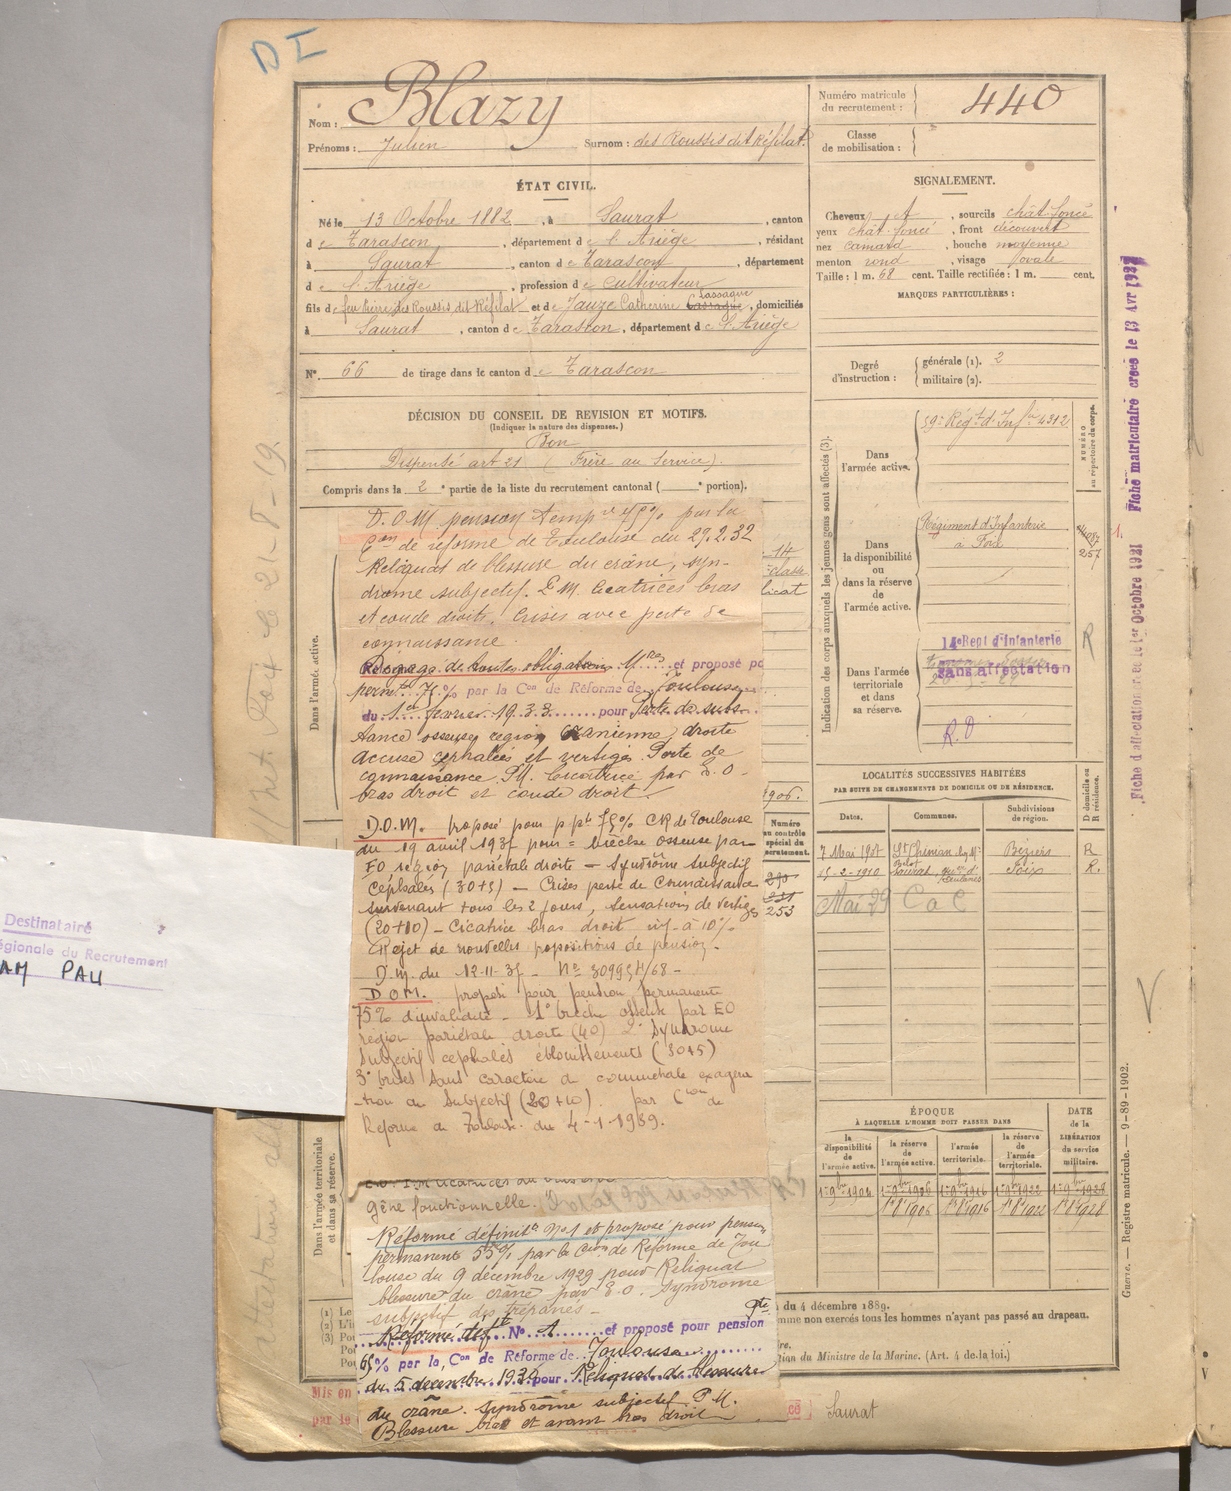 D I
Nom : Blazy
Prénoms : Julien Surnom : des Roussis dit Réfilat.
Numéro matricule du recrutement : 440
Classe de mobilisation :
ÉTAT CIVIL.
Né le 13 Octobre 1882, à Saurat, canton
de Tarascon, département de l'Ariège, résidant
à Saurat, canton de Tarascon, département
de l'Ariège, profession de Cultivateur
fils de feu Pierre des Roussis dit Réfilat et de Jauze Catherine Lassague, domiciliés
à Saurat, canton de Tarascon, département de l'Ariège
N° 66 de tirage dans le canton de Tarascon
DÉCISION DU CONSEIL DE REVISION ET MOTIFS.
(Indiquer la nature des dispenses.)
Bon
Dispensé art 21 (Frère au Service).
Compris dans la 2e partie de la liste du recrutement cantonal ( e portion).
SIGNALEMENT.
Cheveux , sourcils chât. foncé
yeux chât. foncé, front découvert
nez camard, bouche moyenne
menton rond, visage ovale
Taille : 1 m. 68 cent. Taille rectifiée : 1 m. cent.
MARQUES PARTICULIÈRES :
Degré d'instruction : générale (1). 2
militaire (2).
Indication des corps auxquels les jeunes gens sont affectés (3).
NUMÉRO au répertoire du corps.
Dans l'armée active. 59e Régt d'Infie 4312
Dans la disponibilité ou dans la réserve de l'armée active. Régiment d'Infanterie
à Foix
257
Dans l'armée territoriale et dans sa réserve. 14e Regt d'Infanterie
sans affectation
R
LOCALITÉS SUCCESSIVES HABITÉES
PAR SUITE DE CHANGEMENTS DE DOMICILE OU DE RÉSIDENCE.
Dates. Communes. Subdivisions de région. D domicile ou R résidence.
7 Mai 1907 St Chinian Béziers R
15-2-1910 Saurat Foix R.
Mai 29 C a C
ÉPOQUE
À LAQUELLE L'HOMME DOIT PASSER DANS
DATE de la LIBÉRATION du service militaire.
la disponibilité de l'armée active. la réserve de l'armée active. l'armée territoriale. la réserve de l'armée territoriale.
1er 9bre 1904 1er 9bre 1906 1er 9bre 1916 1er 9bre 1922 1er 9bre 1928
1er 8bre 1906 1er 8bre 1916 1er 8bre 1922 1er 8bre 1928
Dans l'armé. active.
D.O.M. pension tempre 75% par la
Con de réforme de Toulouse du 29.2.32
Reliquat de blessure du crâne, syn-
drome subjectif. P.M. Cicatrices bras
et coude droits. Crises avec perte de
connaissance.
Dégagé de toutes obligations Mres et proposé po
permte 75% par la Con de Réforme de Toulouse
du 1er février 1933 pour Perte de subs-
tance osseuse région crânienne droite
accuse céphalées et vertiges. Perte de
connaissance. P.M. Cicatrice par E.O.
bras droit et coude droit
D.O.M. proposé pour p pte 75% CR de Toulouse
du 19 avril 1937 pour = Brèche osseuse par
EO région pariétale droite - Syndrôme subjectif
Céphalées (30+5) - Crises perte de connaissance
survenant tous les 2 jours, sensations de vertiges
(20+10) - Cicatrice bras droit inf. à 10%
Rejet de nouvelles propositions de pension.
D.M. du 12-11-37 - No 309954/68 -
D.O.M. proposé pour pension permanente
75% d'invalidité - 1° brèche osseuse par EO
région pariétale droite (40) 2° Syndrome
subjectif céphalées éblouissements (30+5)
3° crises sans caractère de comitiale exagéra
-tion du subjectif (20+10). par Cion de
Réforme de Toulouse du 4-1-1939.
gêne fonctionnelle.
Réformé définitt n°1 et proposé pour pension
permanente 55% par la Cion de Réforme de Tou
louse du 9 décembre 1929 pour Reliquat
blessure du crâne par E.O. Syndrome
subjectif des trépanés -
Réformé déft No 1 et proposé pour pension pte
65% par la Con de Réforme de Toulouse
du 5 décembre 1930 pour Reliquat de blessure
du crâne. Syndrôme subjectif P.M.
Blessure bras et avant bras droit
Dans l'armée territoriale et dans sa réserve.
1906.
Numéro au contrôle spécial du recrutement.
253
(1) Le
(2) L'i
(3) Pou
du 4 décembre 1889.
mme non exercés tous les hommes n'ayant pas passé au drapeau.
tion du Ministre de la Marine. (Art. 4 de la loi.)
Mis en
par le
Saurat
Fiche d'affectation créée le 1er Octobre 1921
Fiche matriculaire créée le 13 Avr 1927
Guerre. — Registre matricule. — 9-89-1902.
Destinataire
égionale du Recrutement
AM PAU